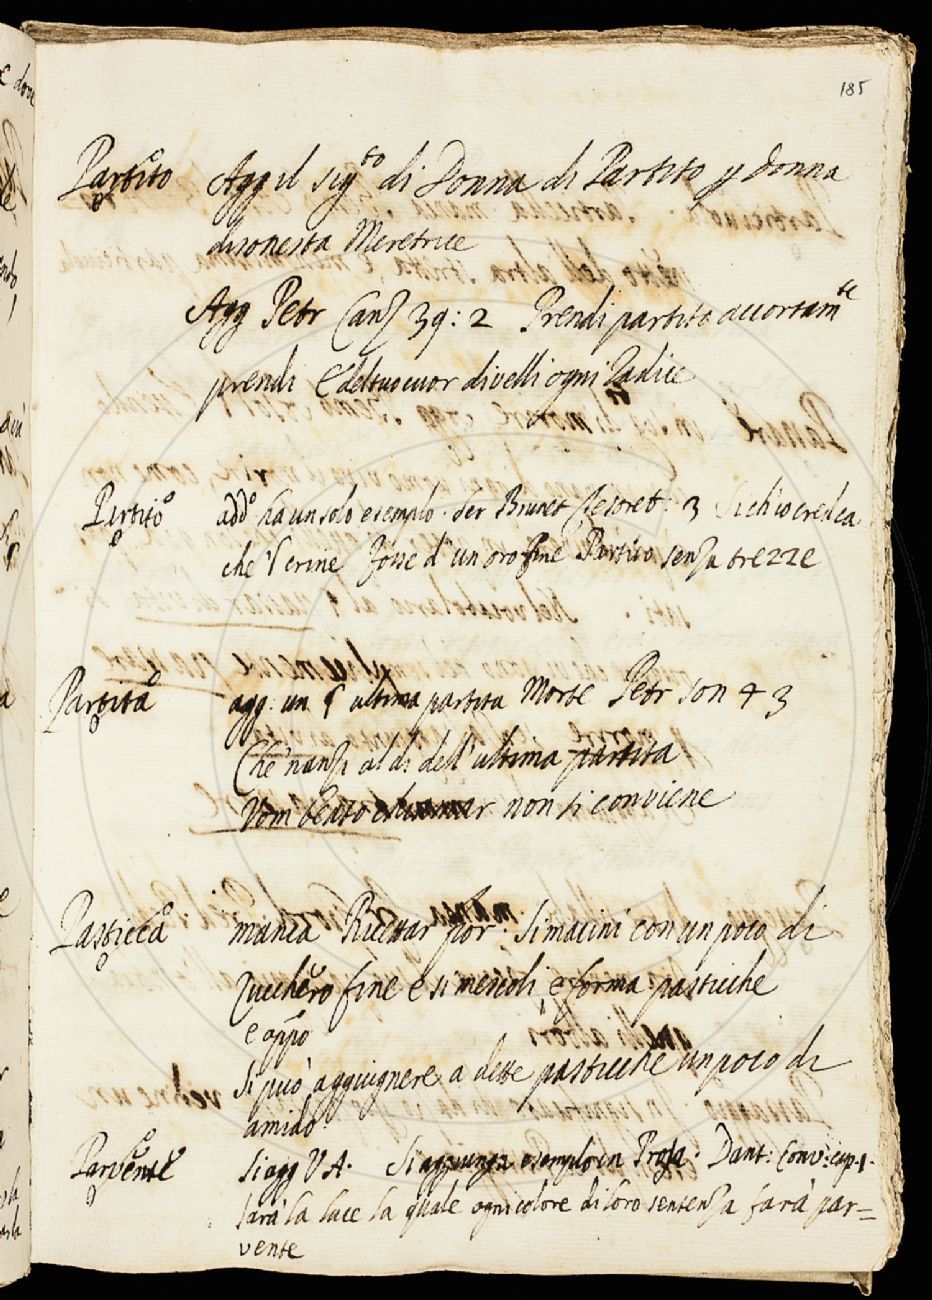 185
Partito Agg il sig.to di Donna di Partito p Donna
disonesta Meretrice
Agg Petr Canz 39: 2 Prendi partito accortam.te
prendi E del tuo cuor divelli ogni Radice
Partito add.o ha un solo esemplo. Ser Brunet Tesoret: 3 Sich'io credea
che 'l crine Fosse d'un oro fine Partito senza trezze
Partita agg: un § ultima partita Morte Petr son 43
Che 'nanzi al di dell'ultima partita
Vom beato chiamar non si conviene
Pasticca manca Ricettar fior: Si macini con un poco di
Zucchero fine e si mescoli, e forma pasticche
e app.o
Si può aggiugnere a dette pasticche un poco di
amido.
Parvente Si agg V A. Si aggiunga esemplo in Prosa. Dant: Conv: cap. 1.
sarà la luce la quale ogni colore di loro sentenza farà par=
vente